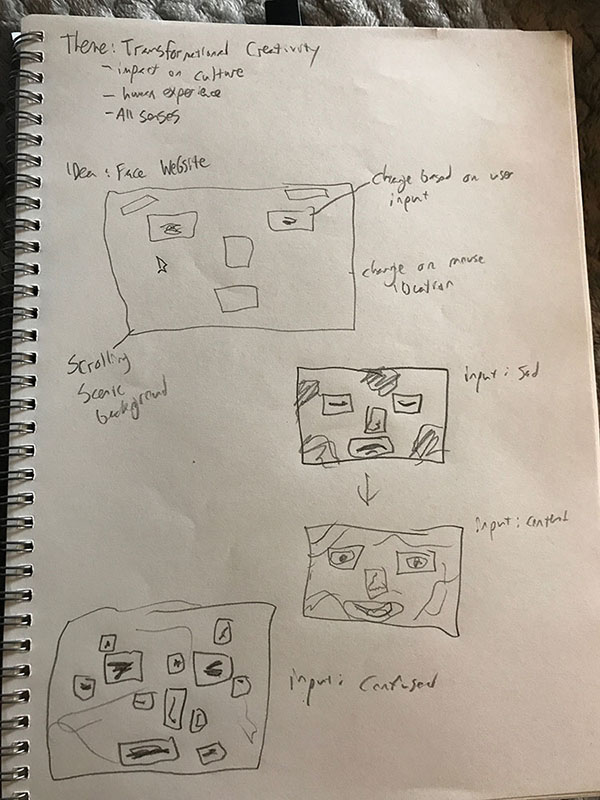 Theme: Transformational Creativity
- impact on culture
- human experience
- All senses
Idea: Face Website
change based on user
input
change on mouse
location
Scrolling
Scenic
background
input: Sad
input: content
input: Confused